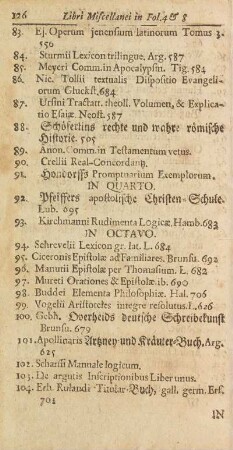 126 Libri Miscellanei in Fol. 4 & 8
83. Ej. Operum jenensium latinorum Tomus 3.
550
84. Sturmii Lexicon trilingue, Arg. 587
85. Meyeri Comm. in Apocalypsin. Tig. 584
86. Nic. Tollii textualis Dispositio Evangeli-
orum Gluckst, 684
87. Ursini Tractatt. theoll. Volumen, & Explica-
tio Esaiæ. Neost. 587
88. Schöferlins rechte und wahre römische
Historie. 505
89. Anon. Comm. in Testamentum vetus.
90. Crellii Real-Concordantz.
91. Hondorffs Promptuarium Exemplorum.
IN QUARTO.
92. Pfeiffers apostolische Christen-Schule.
Lub. 695
93. Kirchmanni Rudimenta Logicæ, Hamb. 683
IN OCTAVO.
94. Schrevelii Lexicon gr. lat. L. 684
95. Ciceronis Epistolæ ad Familiares. Brunsu. 692
96. Manutii Epistolæ per Thomasium L. 682
97. Mureti Orationes & Epistolæ ib. 690
98. Buddei Elementa Philosophiæ. Hal. 706
99. Vogelii Aristoteles integre resolutus. L. 626
100. Gebh. Overheids deutsche Schreibekunst
Brunsu. 679
101. Apollinaris Artzney und Kräuter-Buch, Arg.
625
102. Scharfii Manuale logicum.
103. De argutis Inscriptionibus Liber unus.
104. Erh. Rulandi Titular-Buch, gall. germ. Erf.
701
IN